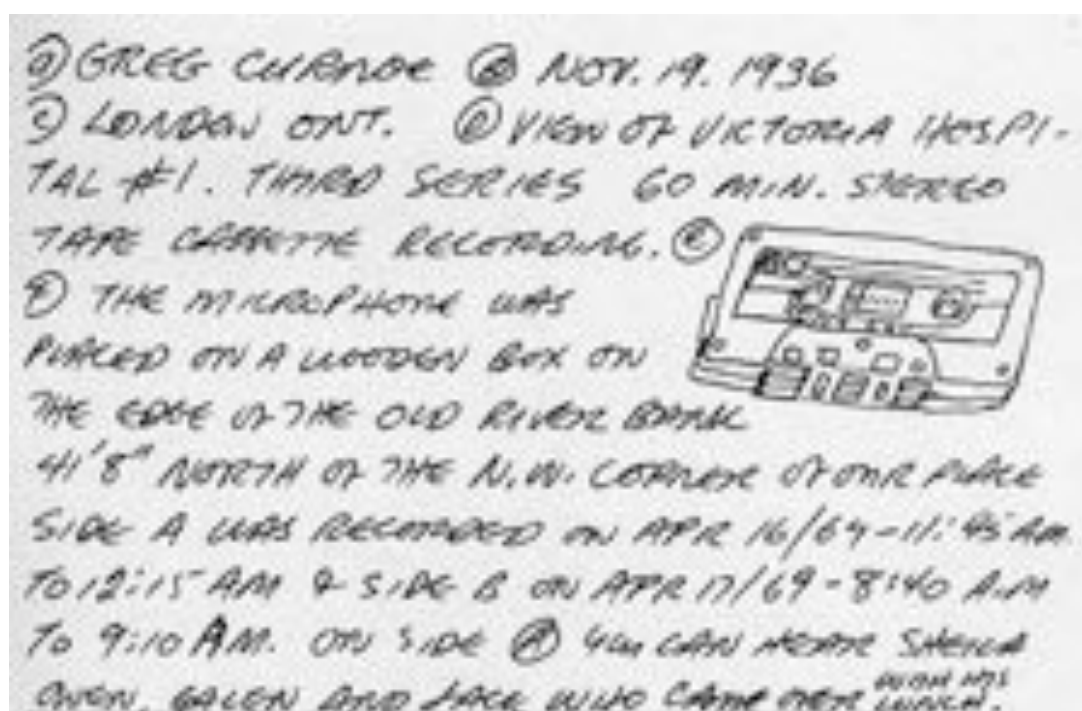 Ⓐ GREG CURNOE Ⓑ NOV. 19. 1936
Ⓒ LONDON ONT. Ⓓ VIEW OF VICTORIA HOSPI-
TAL #1. THIRD SERIES 60 MIN. STEREO
TAPE CASSETTE RECORDING. Ⓔ
Ⓕ THE MICROPHONE WAS
PLACED ON A WOODEN BOX ON
THE EDGE OF THE OLD RIVER BANK
41'8" NORTH OF THE N.W. CORNER OF OUR PLACE
SIDE A WAS RECORDED ON APR 16/69-11:45 AM.
TO 12:15 AM & SIDE B ON APR 17/69-8:40 A.M
TO 9:10 AM. ON SIDE Ⓐ YOU CAN HEAR SHEILA
OWEN, GALEN AND JACK WHO CAME OVER WITH HIS LUNCH.